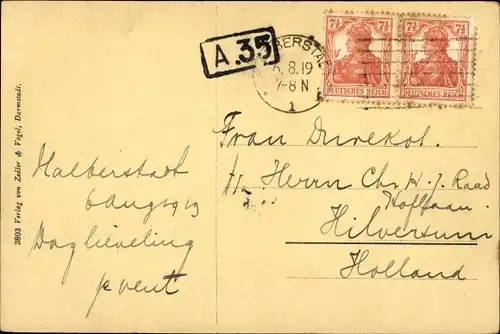 A.35
BERSTA
8.19
7-8 N
1
7½ 7½ 7½ 7½
DEUTSCHES REICH DEUTSCHES REICH
3803 Verlag von Zedler & Vogel, Darmstadt.
Halberstadt
6 Aug 1919
Dag lieveling
Frau Durekol.
Herrn Chr. H. J. Raad
Hilversum
Holland